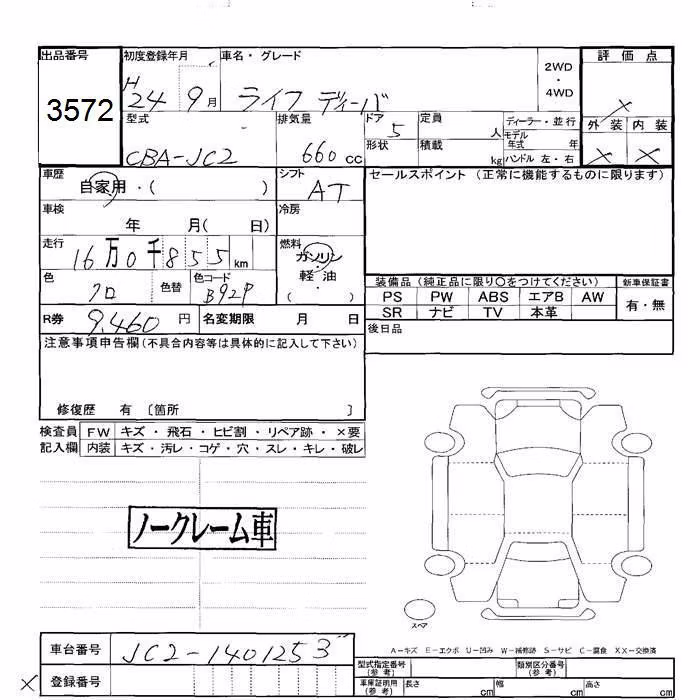 出品番号
3572
初度登録年月
H 24 9月
車名・グレード
ライフ ディーバ
2WD
・
4WD
評価点
×
外装 内装
× ×
型式
CBA-JC2
排気量
660 cc
ドア 5
形状
定員 人
積載 kg
ディーラー・並行
モデル年式 年
ハンドル 左・右
車歴
自家用・( )
シフト
AT
セールスポイント (正常に機能するものに限ります)
車検
年 月( 日)
冷房
走行
16万0千855 km
燃料
ガソリン
・
軽油
( )
色
クロ
色替
色コード
B92P
装備品 (純正品に限り○をつけてください)
新車保証書
PS PW ABS エアB AW
SR ナビ TV 本革
有・無
R券 9,460 円
名変期限 月 日
後日品
注意事項申告欄 (不具合内容等は具体的に記入して下さい)
修復歴 有 〔箇所 〕
検査員記入欄
FW キズ・飛石・ヒビ割・リペア跡・×要
内装 キズ・汚レ・コゲ・穴・スレ・キレ・破レ
ノークレーム車
スペア
A-キズ E-エクボ U-凹み W-補修跡 S-サビ C-腐食 XX-交換済
車台番号
JC2-1401253
× 登録番号
型式指定番号(参考)
類別区分番号(参考)
車庫証明用(参考) 長さ cm 幅 cm 高さ cm